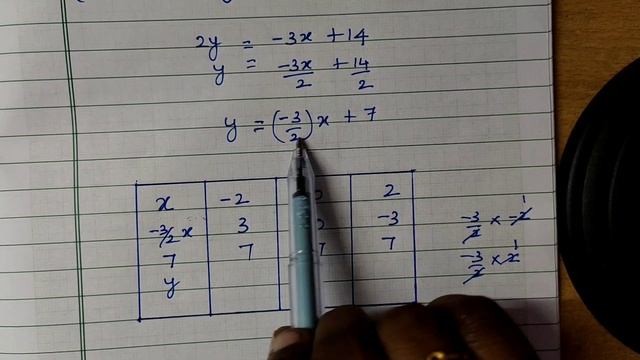 2y = -3x + 14
y = -3x/2 + 14/2
y = (-3/2)x + 7
x -2 0 2
-3/2 x 3 -3
7 7 7 7
y
-3/2 × -2 1
-3/2 × 2 1